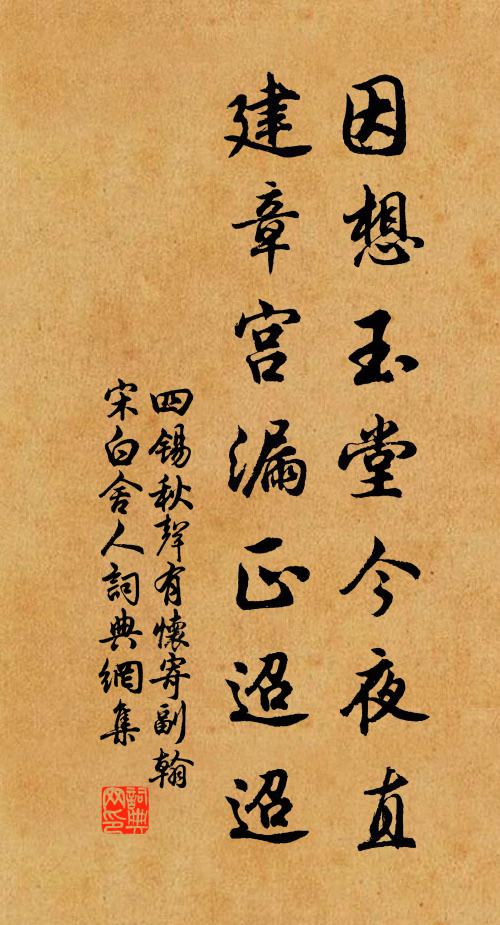 因想玉堂今夜直
建章宫漏正迢迢
四锡秋聲有懷寄副翰
宋白舍人詞典網集
詞典網印